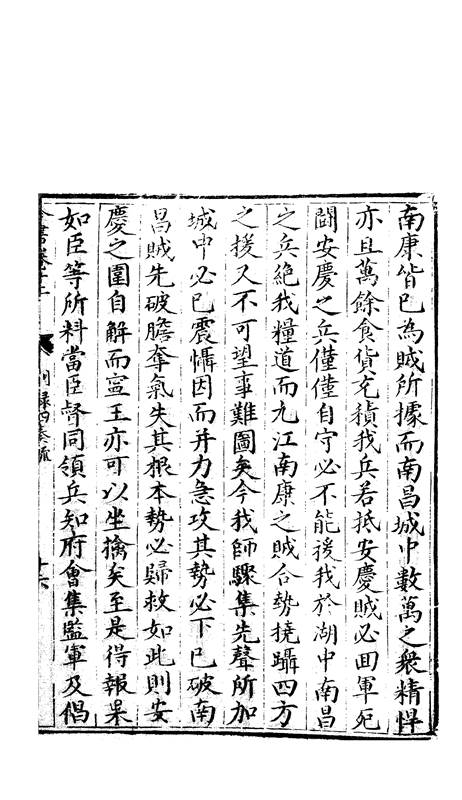 南康皆已為賊所據而南昌城中數萬之衆精悍
亦且萬餘食貨充積我兵若抵安慶賊必囬軍死
鬬安慶之兵僅僅自守必不能援我於湖中南昌
之兵絕我糧道而九江南康之賊合勢撓躡四方
之援又不可望事難圖矣今我師驟集先聲所加
城中必已震懾因而并力急攻其勢必下已破南
昌賊先破膽奪氣失其根本勢必歸救如此則安
慶之圍自解而寕王亦可以坐擒矣至是得報果
如臣等所料當臣督同領兵知府會集監軍及倡
全書卷十二 別錄四奏疏 十六